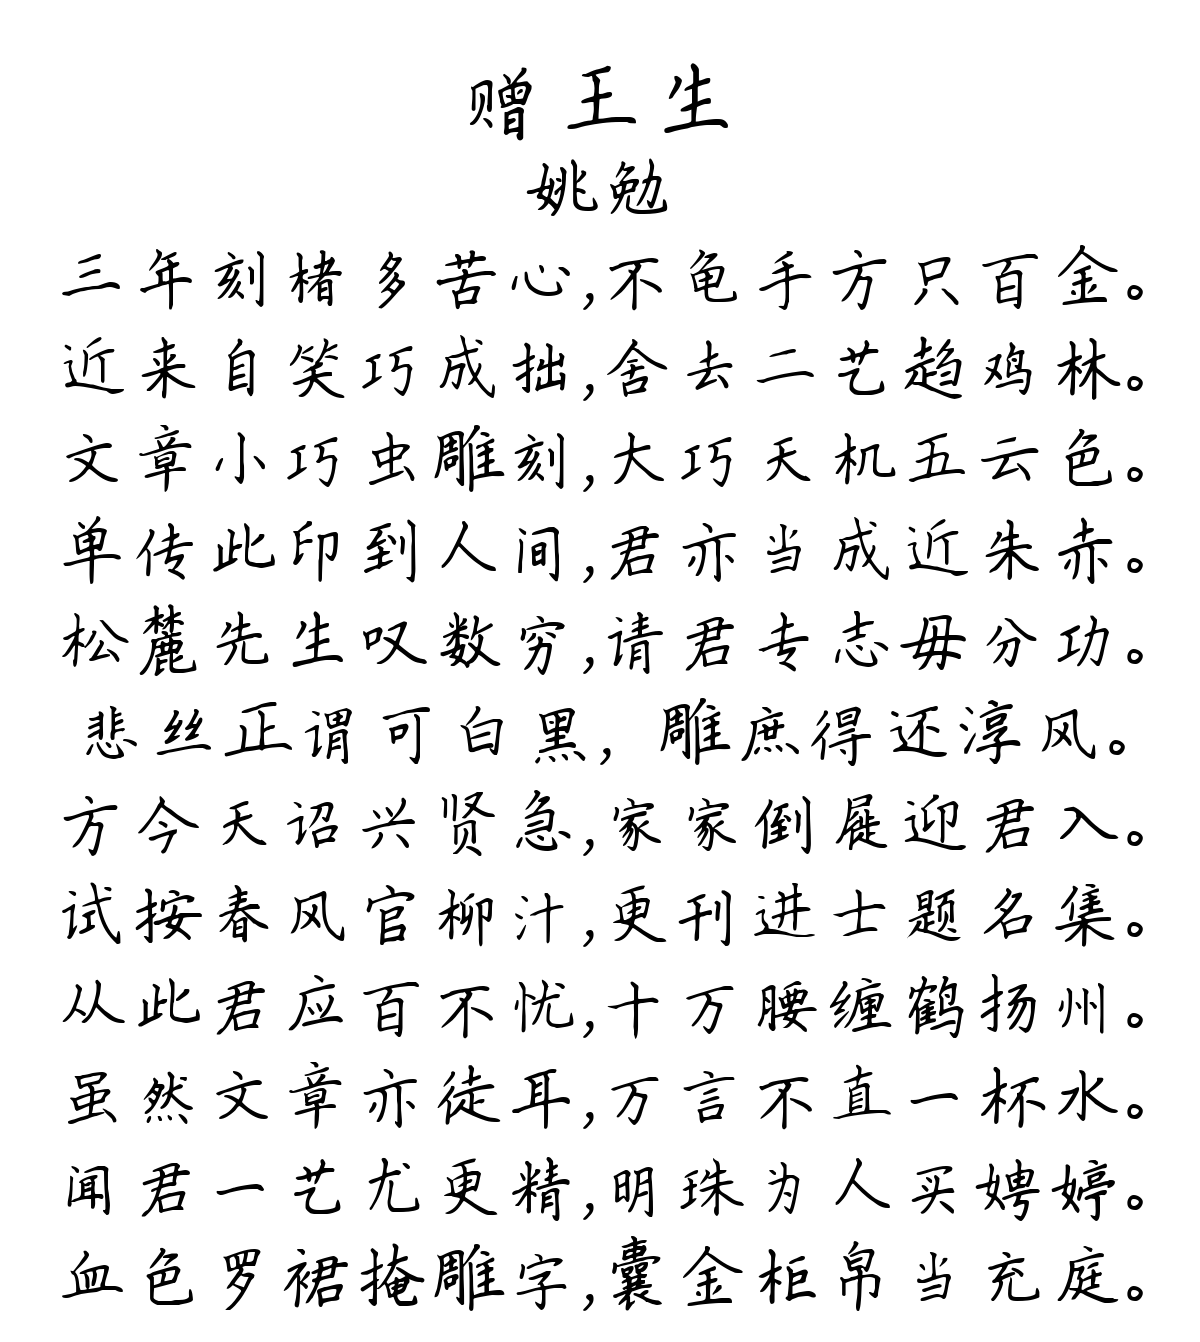 赠王生
姚勉
三年刻楮多苦心,不龟手方只百金。
近来自笑巧成拙,舍去二艺趋鸡林。
文章小巧虫雕刻,大巧天机五云色。
单传此印到人间,君亦当成近朱赤。
松麓先生叹数穷,请君专志毋分功。
悲丝正谓可白黑,雕庶得还淳风。
方今天诏兴贤急,家家倒屣迎君入。
试按春风官柳汁,更刊进士题名集。
从此君应百不忧,十万腰缠鹤扬州。
虽然文章亦徒耳,万言不直一杯水。
闻君一艺尤更精,明珠为人买娉婷。
血色罗裙掩雕字,囊金柜帛当充庭。